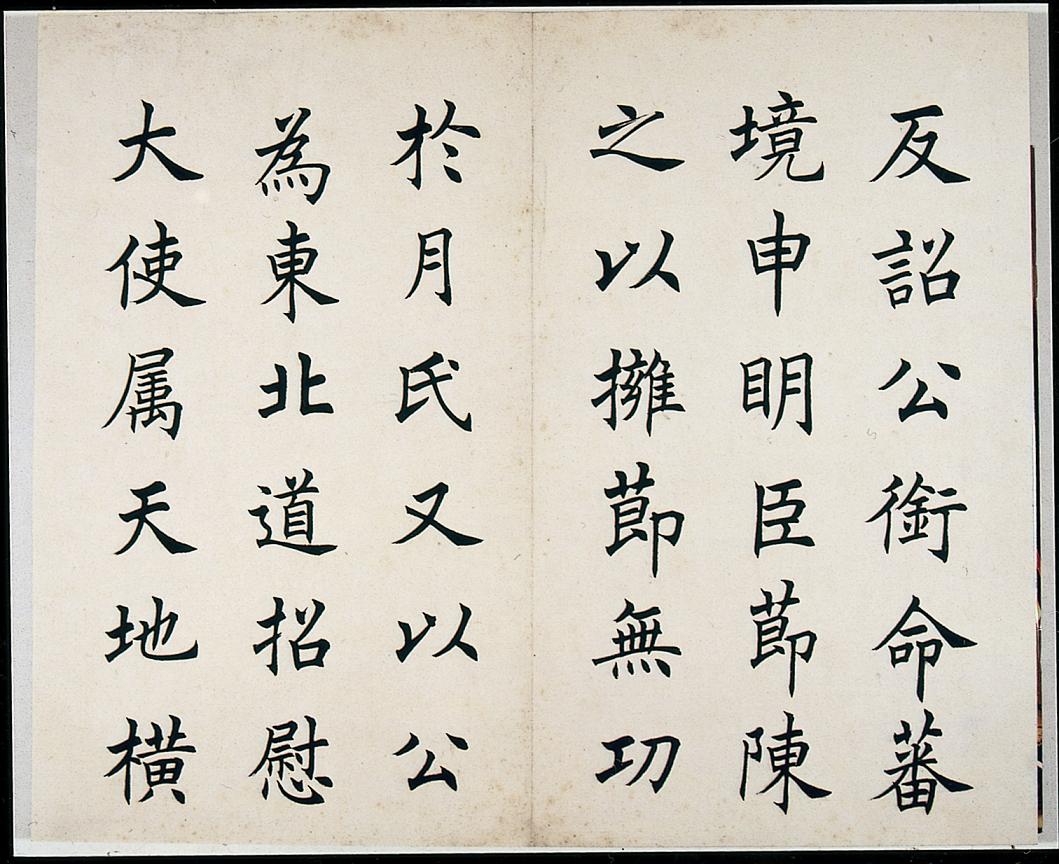 反詔公銜命蕃
境申明臣莭陳
之以擁莭無功
於月氏又以公
為東北道招慰
大使属天地橫